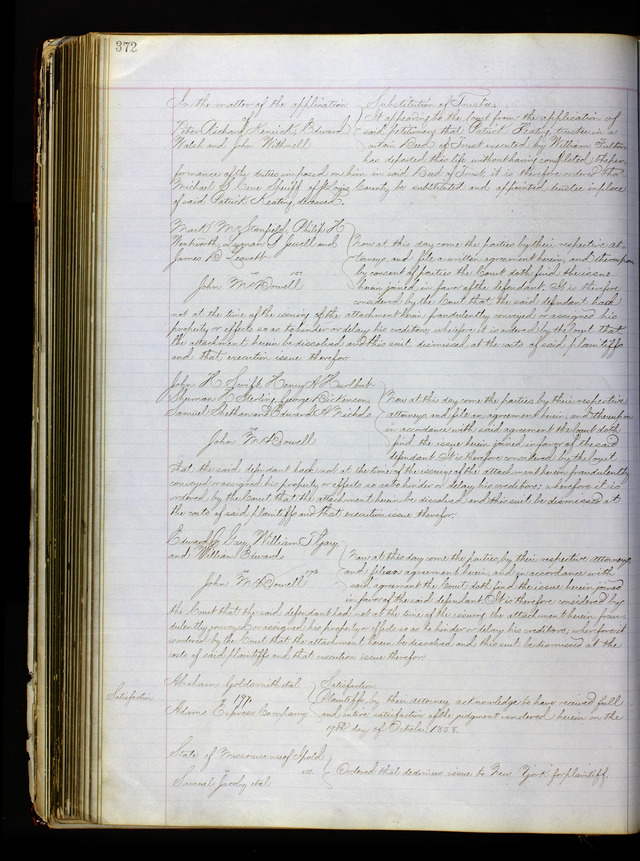 372
In the matter of the application Substitution of Trustee
of It appearing to the Court from the application of
Peter Richard Kenrick, Edward said petitioners that Patrick Keating trustee in a
Walsh and John Withnell certain Deed of Trust executed by William
has departed this life without having completed the per-
formance of the duties imposed on him in said Deed of Trust it is therefore ordered that
Michael S Sheriff of St Louis County be substituted and appointed trustee in place
of said Patrick Keating deceased.
Mark M. Stanfield, Philip H
Wentworth, Lyman A Jewell and Now at this day come the parties by their respective at-
James D Leavitt torneys and file a written agreement herein, and thereupon
vs. by consent of parties the Court doth find the issue
John McDowell herein joined in favor of the defendant. It is therefore
considered by the Court that the said defendant hath
not at the time of the issuing of the attachment herein fraudulently conveyed or assigned his
property or effects so as to hinder or delay his creditors; wherefore it is ordered by the Court that
the attachment herein be dissolved and this suit dismissed at the costs of said plaintiffs
and that execution issue therefor.
John H Swift, Henry A Hurlbut
Sherman H Sterling George Dickinson Now at this day come the parties by their respective
Samuel Shethar & Edward A Nichols attorneys and file in agreement herein, and thereupon
in accordance with said agreement the Court doth
John McDowell find the issue herein joined in favor of the said
defendant. It is therefore considered by the Court
that the said defendant hath not at the time of the issuing of the attachment herein fraudulently
conveyed or assigned his property or effects so as to hinder or delay his creditors; wherefore it is
ordered by the Court that the attachment herein be dissolved and this suit be dismissed at
the costs of said plaintiffs and that execution issue therefor.
Edward J. Gay, William T Gay
and William Edwards Now at this day come the parties by their respective attorneys
vs. and file an agreement herein, and in accordance with
John McDowell said agreement the Court doth find the issue herein joined
in favor of the said defendant. It is therefore considered by
the Court that the said defendant had not at the time of the issuing the attachment herein frau-
dulently conveyed or assigned his property or effects so as to hinder or delay his creditors; wherefore it
is ordered by the Court that the attachment herein be dissolved and this suit be dismissed at the
costs of said plaintiffs and that execution issue therefor.
Abraham Goldsmith et al Satisfaction
Satisfaction vs. Plaintiffs by their attorney acknowledge to have received full
Adams Express Company and entire satisfaction of the judgment rendered herein on the
day of October 1858.
State of Missouri use of
vs. Ordered that dedimus issue to New York for plaintiff.
Samuel Jacoby et al